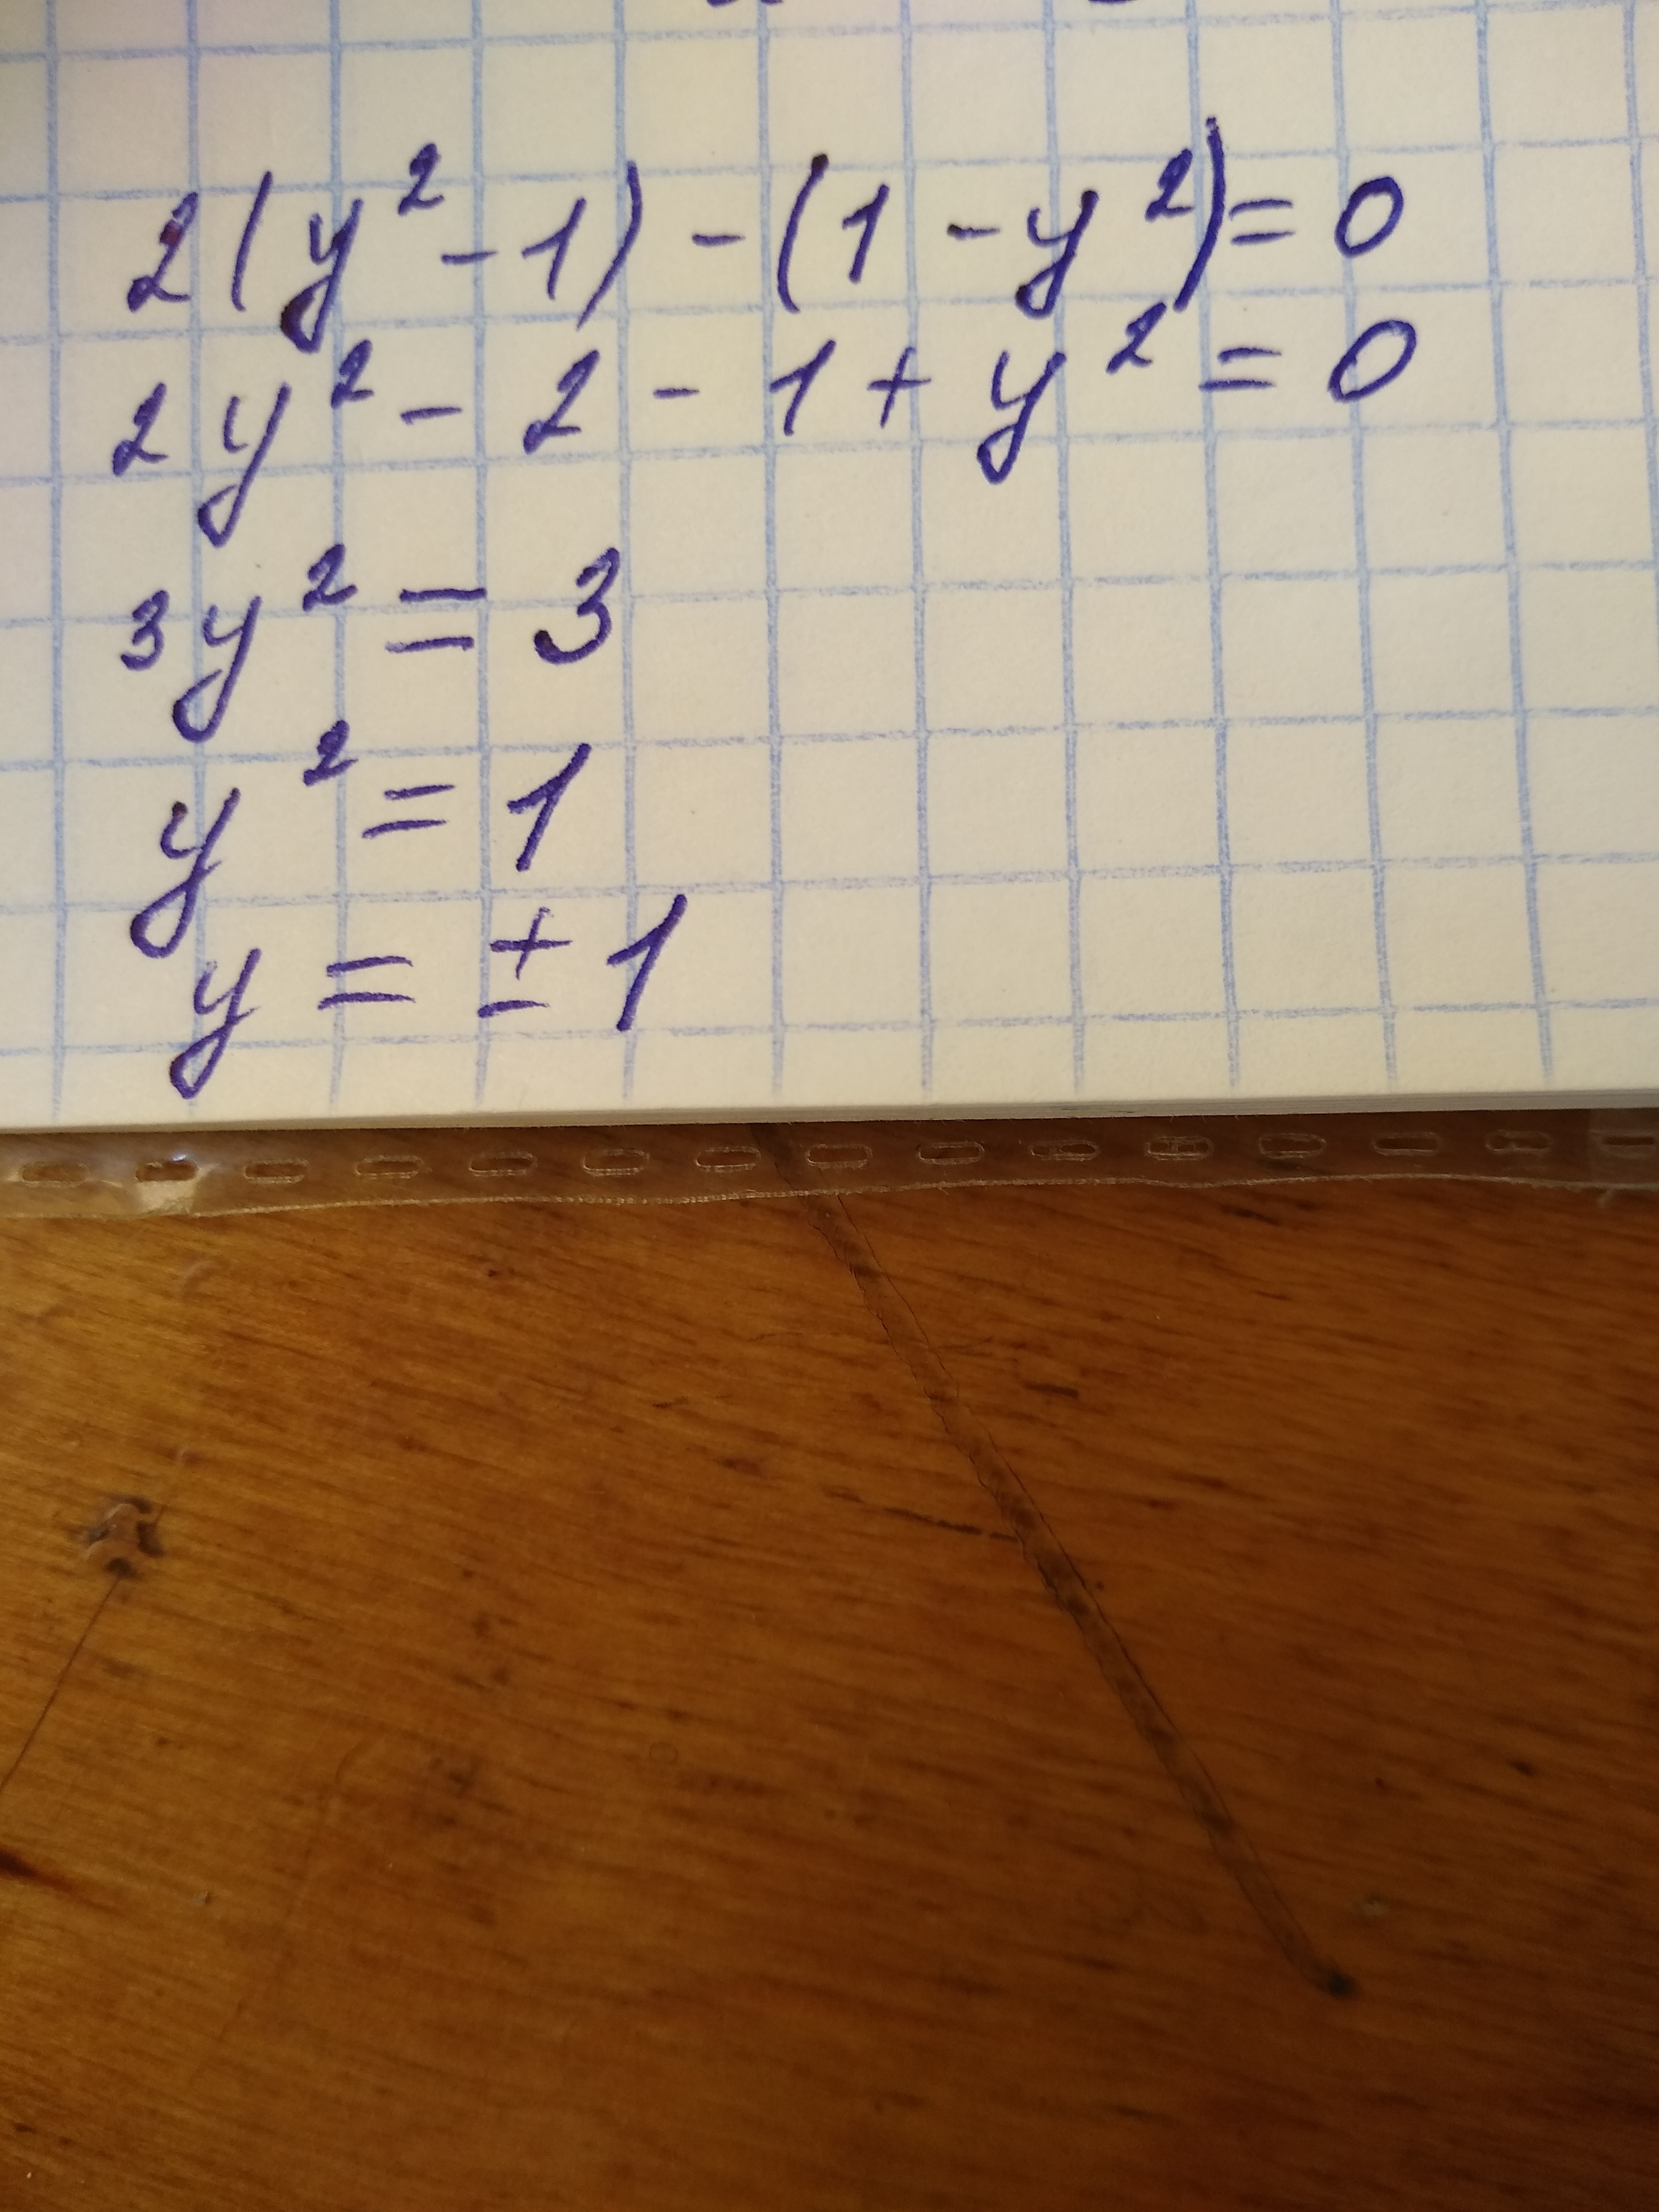 2(y²-1)-(1-y²)=0
2y²-2-1+y²=0
3y²=3
y²=1
y=±1